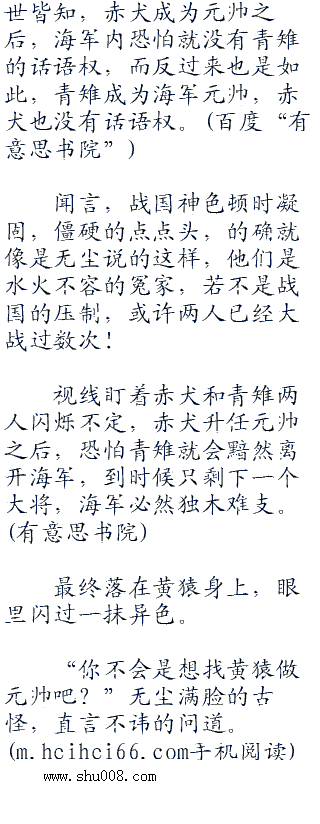 世皆知，赤犬成为元帅之
后，海军内恐怕就没有青雉
的话语权，而反过来也是如
此，青雉成为海军元帅，赤
犬也没有话语权。(百度“有
意思书院”)
闻言，战国神色顿时凝
固，僵硬的点点头，的确就
像是无尘说的这样，他们是
水火不容的冤家，若不是战
国的压制，或许两人已经大
战过数次！
视线盯着赤犬和青雉两
人闪烁不定，赤犬升任元帅
之后，恐怕青雉就会黯然离
开海军，到时候只剩下一个
大将，海军必然独木难支。
(有意思书院)
最终落在黄猿身上，眼
里闪过一抹异色。
“你不会是想找黄猿做
元帅吧？”无尘满脸的古
怪，直言不讳的问道。
(m.hcihci66.com手机阅读)
www.shu008.com